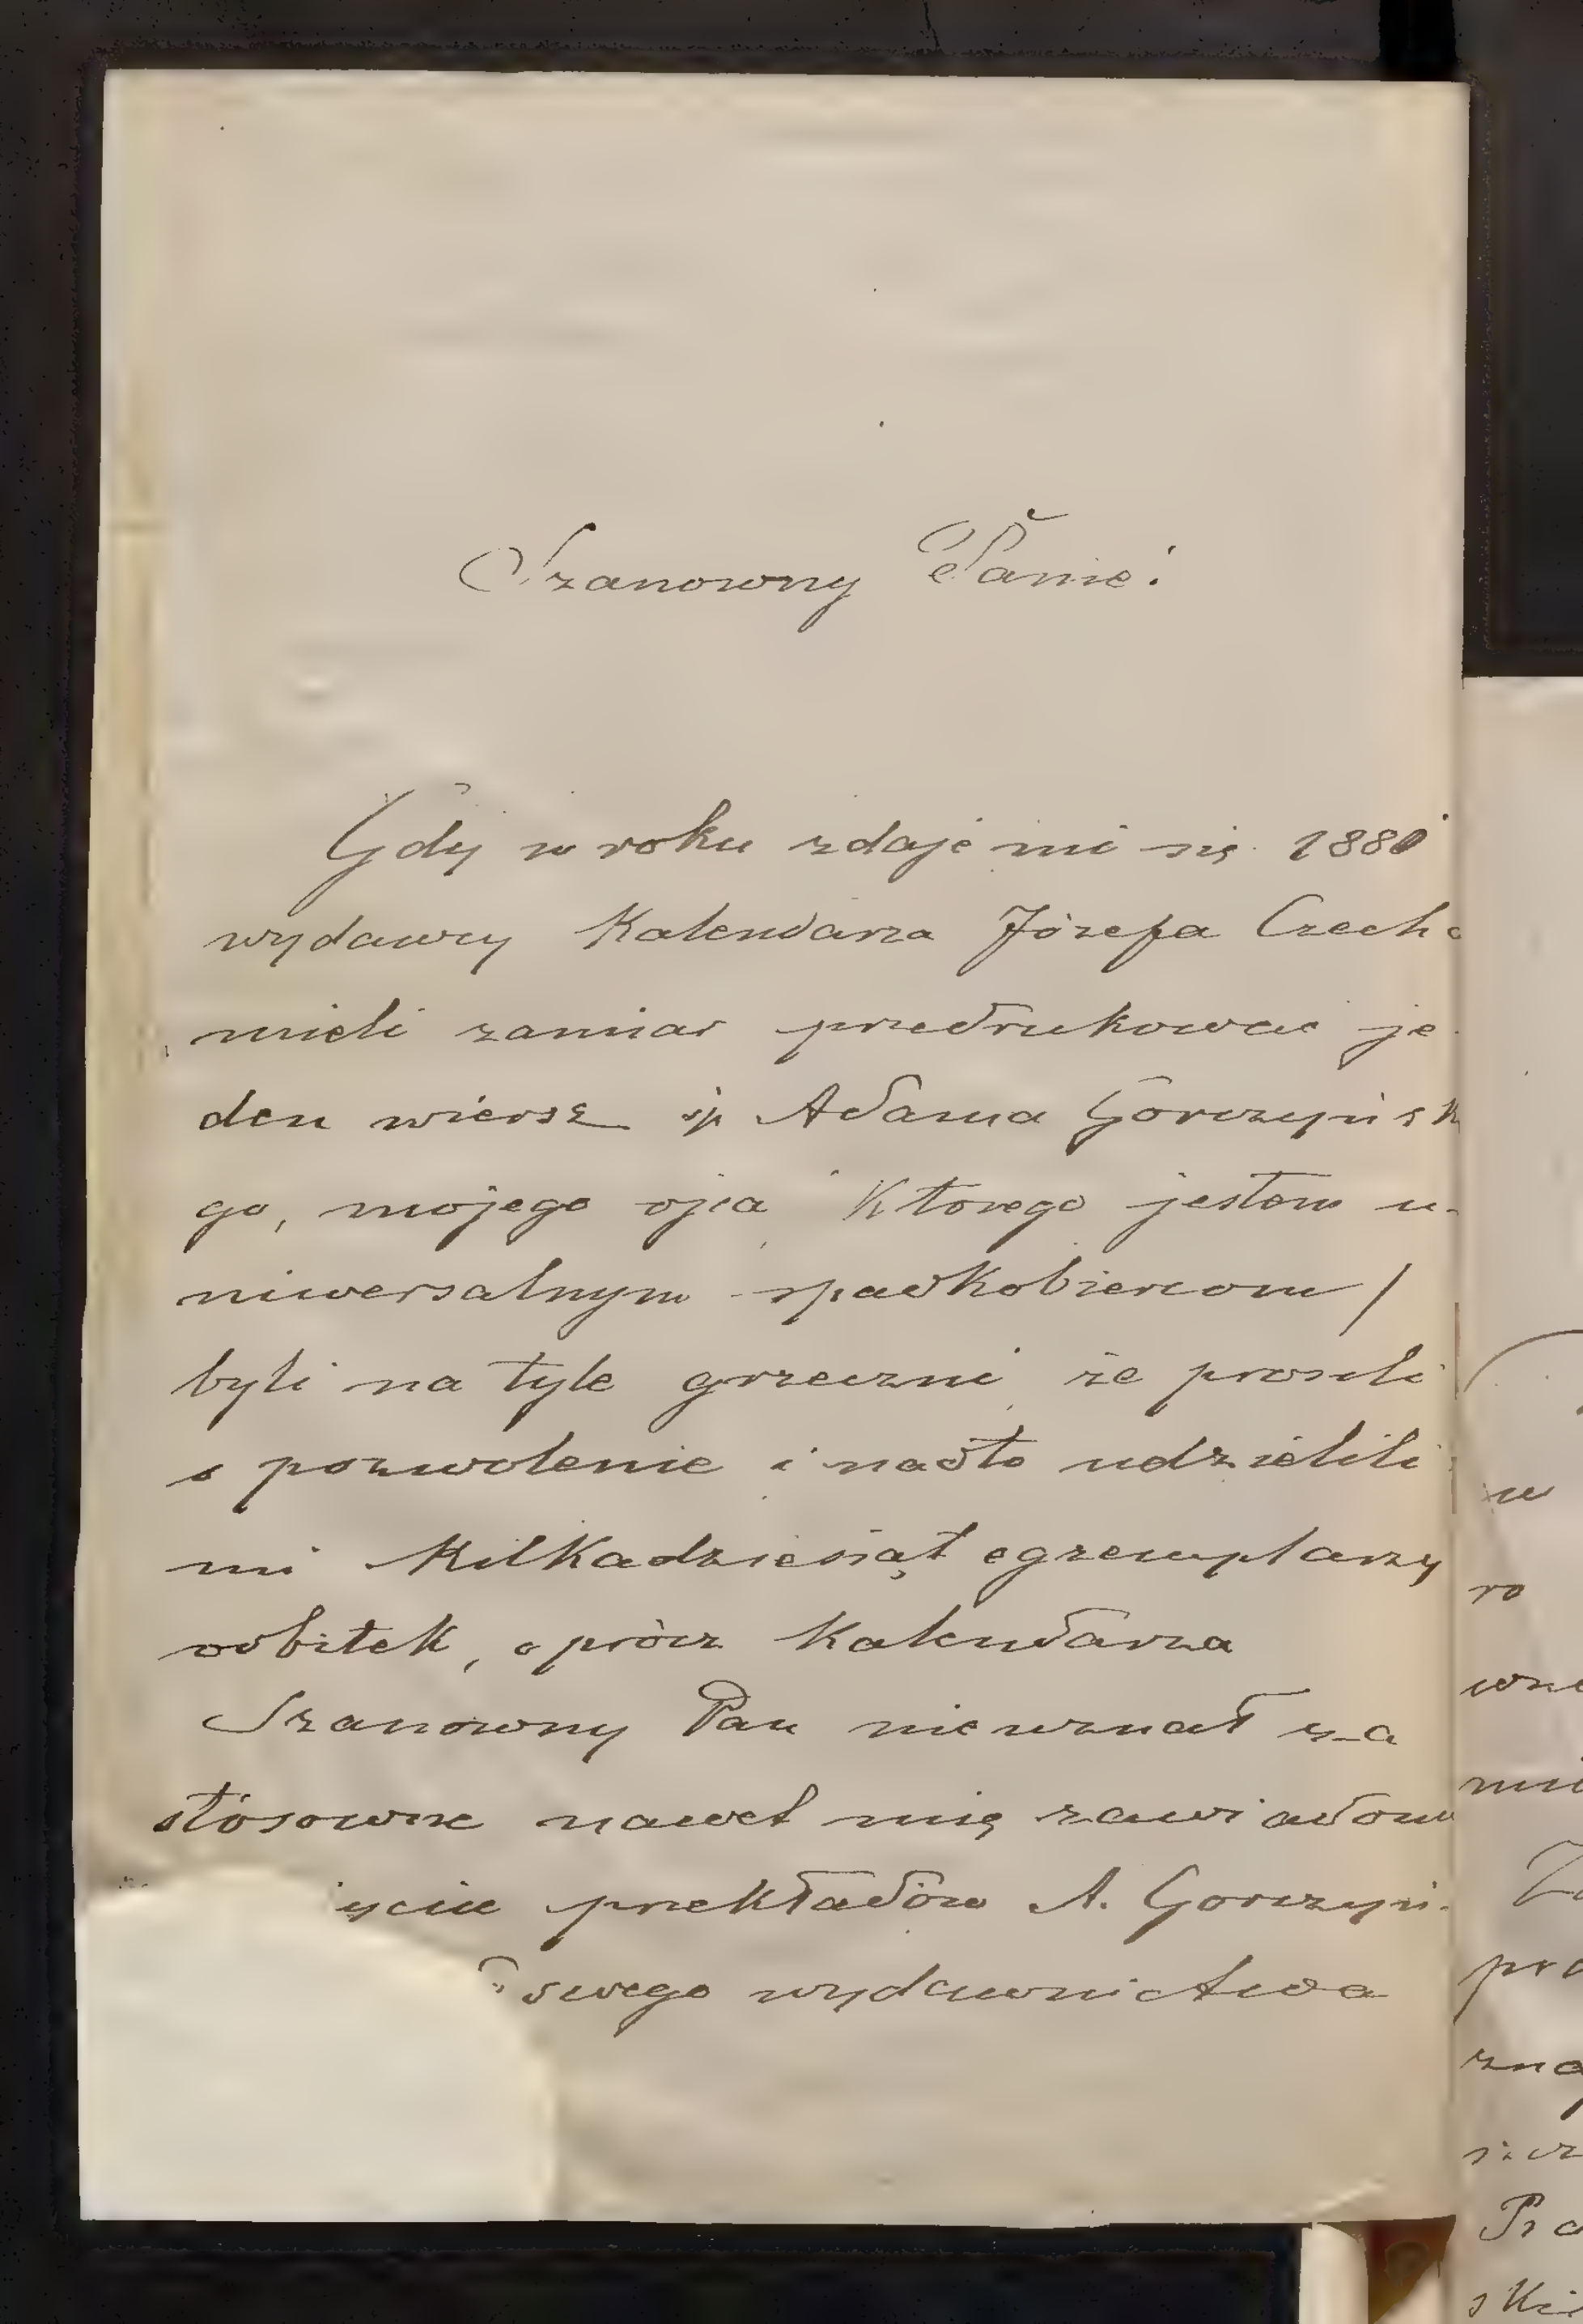 Szanowny Panie!
Gdy w roku zdaje mi się 1880
wydawcy Kalendarza Józefa Czecha
mieli zamiar przedrukować je
den wiersz śp Adama Gorczyńsk
go, mojego ojca Którego jestem u-
niwersalnym spadkobiercom /
byli na tyle grzeczni że prosili
o pozwolenie i nadto udzielili
mi Kilkadziesiąt egzemplarzy
odbitek, oprócz Kalendarza
Szanowny Pan nie uznał za
stósowne nawet mię zawiadom
przekładów A. Gorczyń-
swego wydawnictwa
w
ro
Za